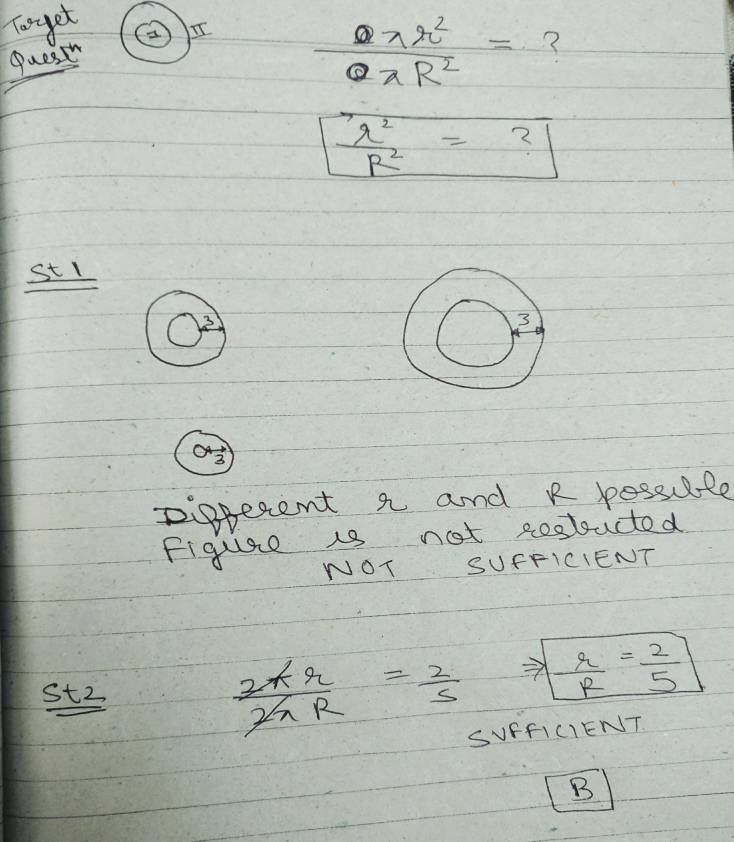 Target
Questn
I
II
πr² / πR² = ?
r² / R² = ?
St 1
3
3
3
Different r and R possible
Figure is not restricted
NOT SUFFICIENT
St2
2πr / 2πR = 2/5 ⇒ r/R = 2/5
SUFFICIENT
B